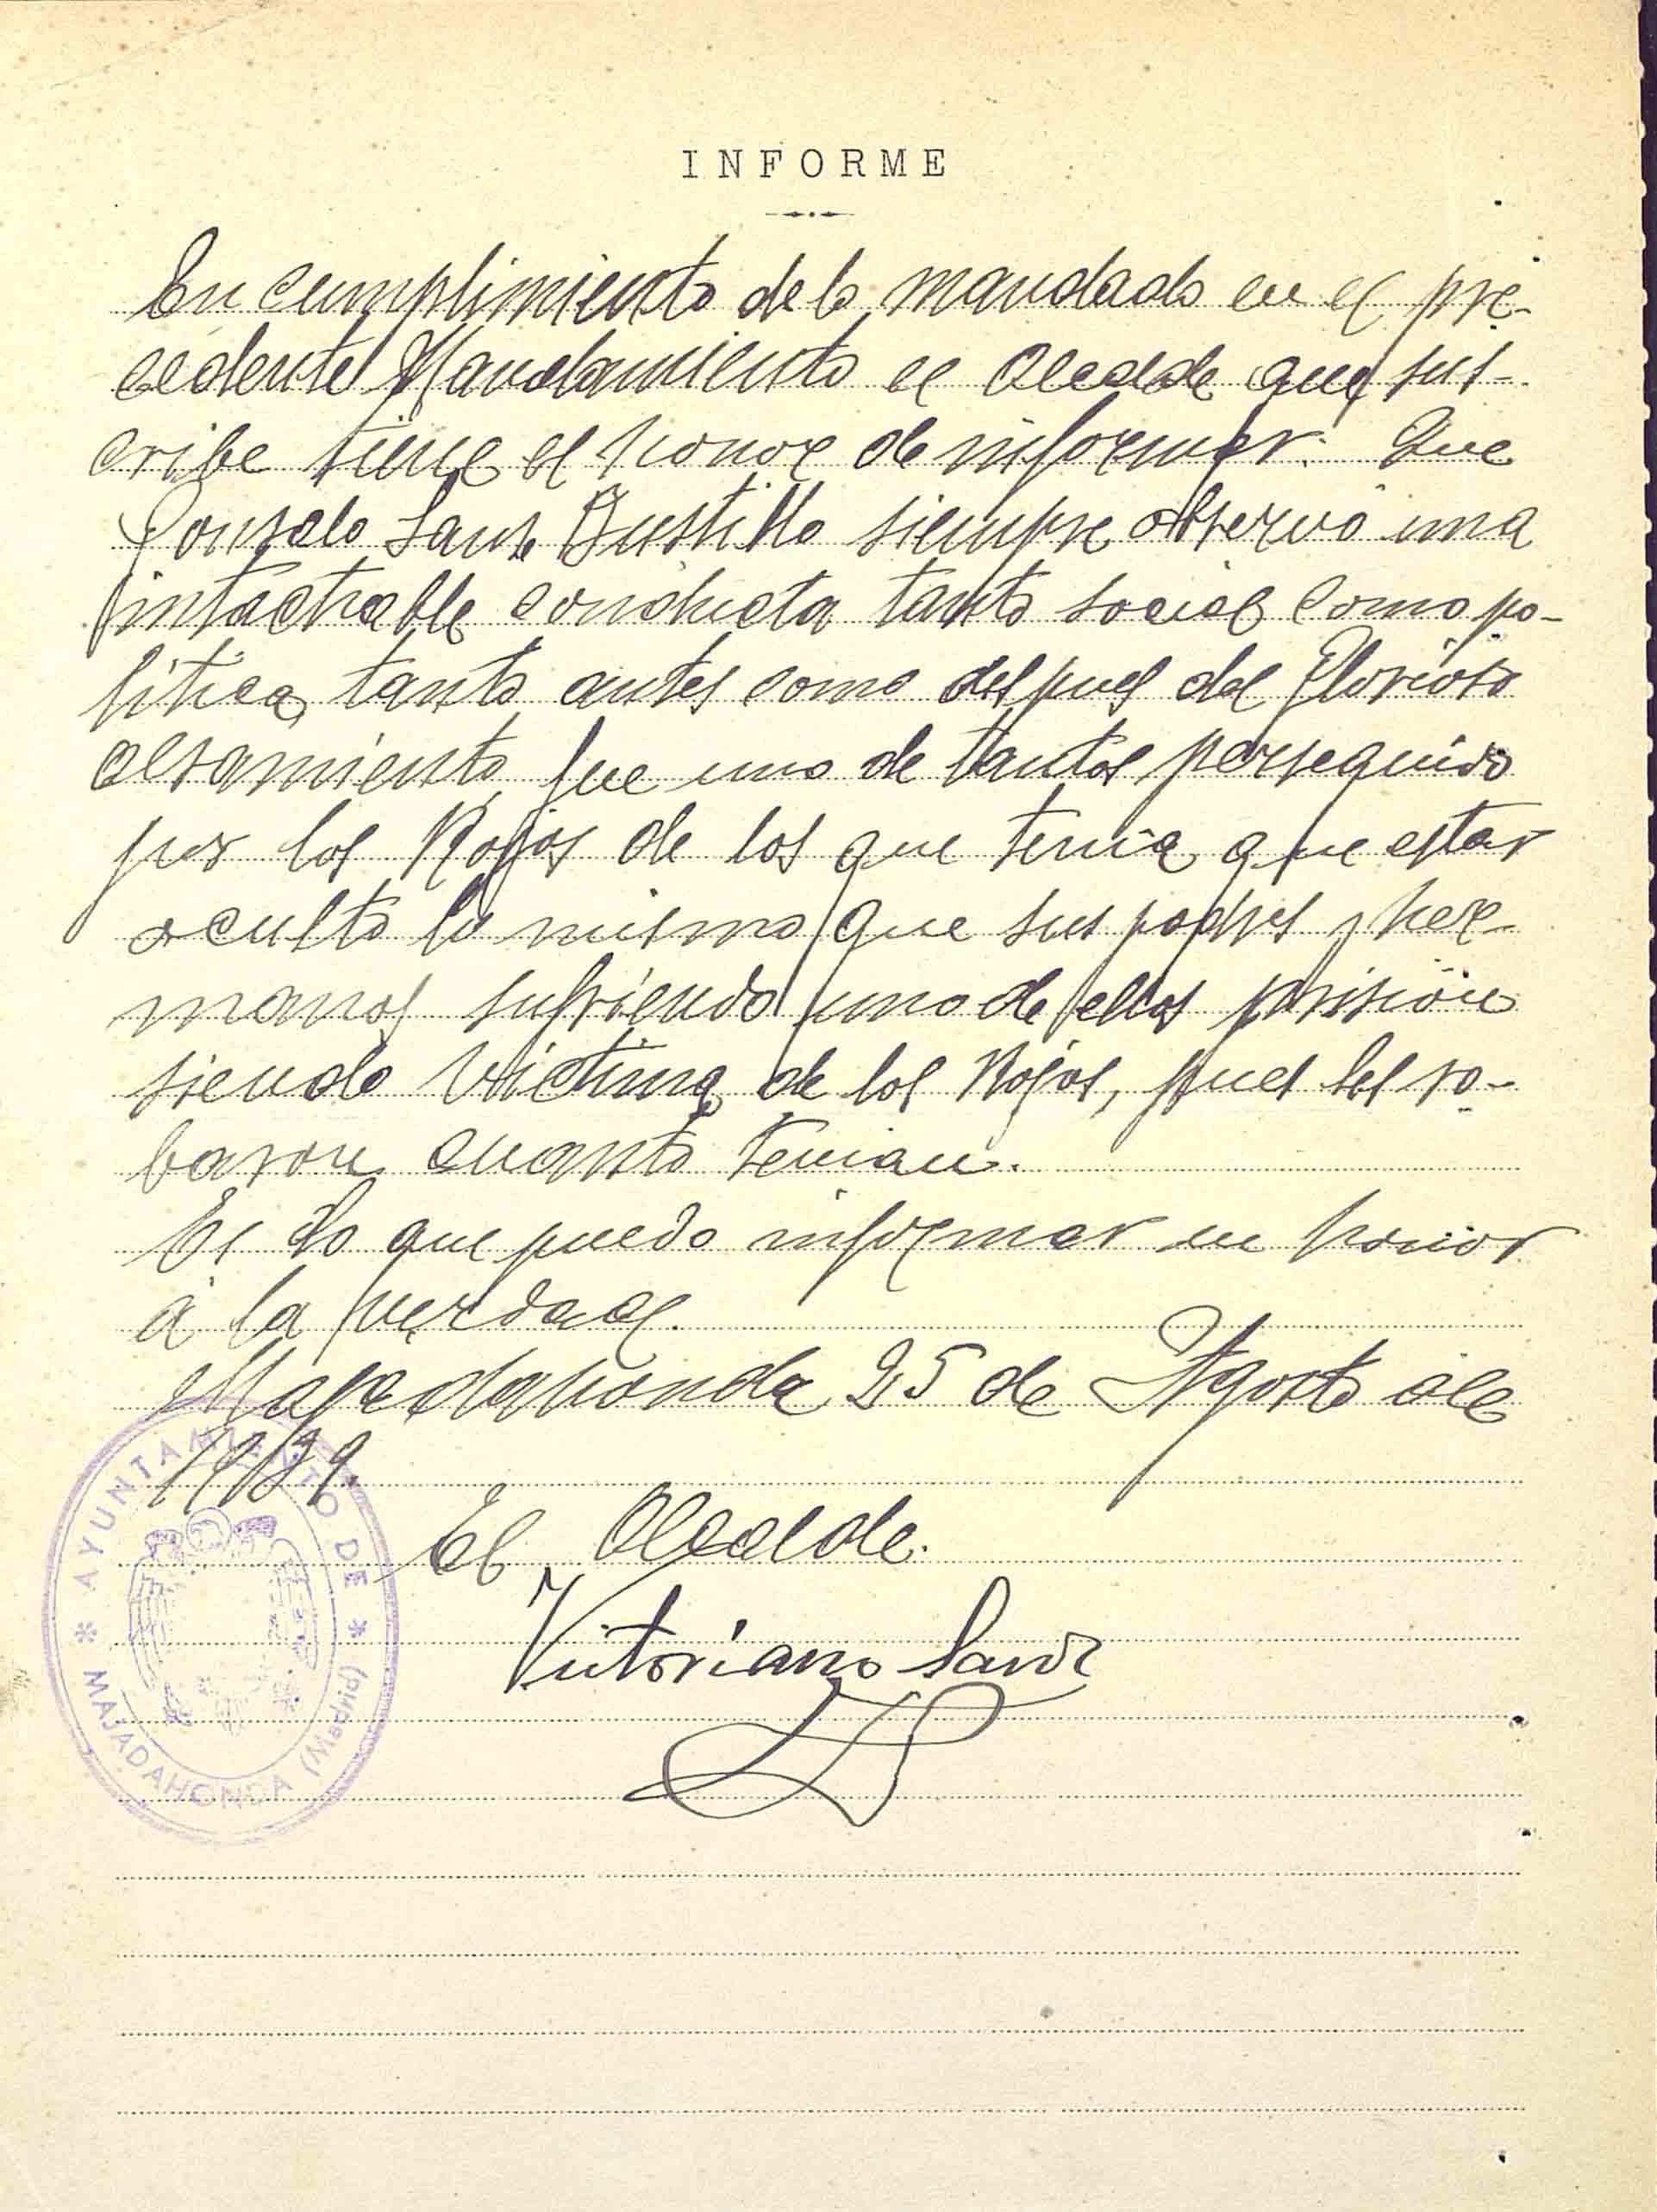 INFORME
En cumplimiento de lo mandado en el pre-
cedente Mandamiento el Alcalde que sus-
cribe tiene el honor de informar: Que
Gonzalo Sanz Bustillo siempre observó una
intachable conducta tanto social como po-
lítica, tanto antes como despues del Glorioso
alzamiento, fue uno de tantos perseguido
por los Rojos de los que tenia que estar
oculto lo mismo que sus padres y her-
manos sufriendo uno de ellos prisión
siendo victima de los Rojos, pues les ro-
baron cuanto tenian.
Es lo que puedo informar en honor
a la verdad.
Majadahonda 25 de Agosto de
1939.
El Alcalde.
Victoriano Sanz
AYUNTAMIENTO DE * MAJADAHONDA (Madrid) *